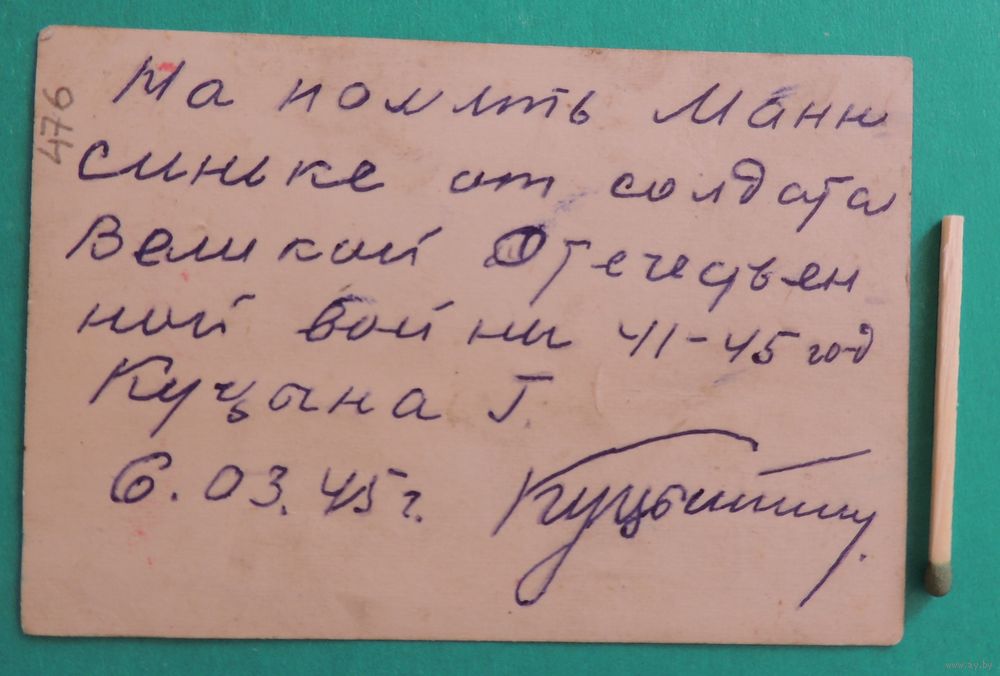 476
На помять Манн
синьке от солдата
Великой Отечествен
ной войни 41-45 год
Куцына Г.
6.03.45г.
www.ay.by